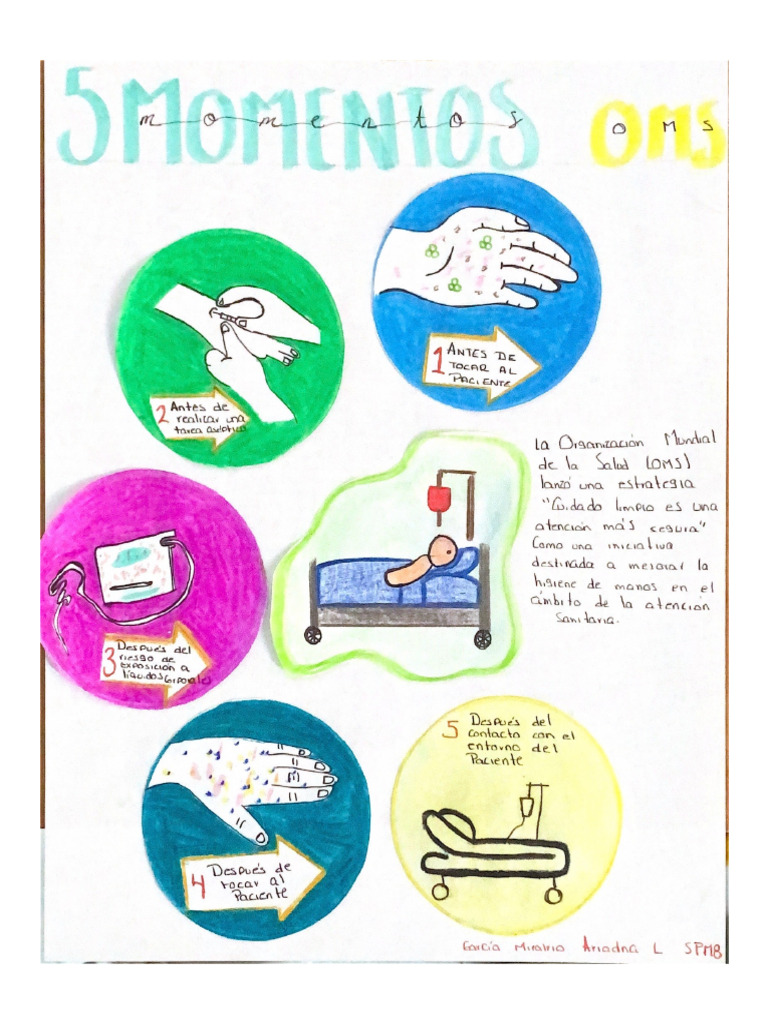 5 MOMENTOS OMS
momentos OMS
1 ANTES DE
TOCAR AL
PACIENTE
2 Antes de
realizar una
tarea aséptica
3 Después del
riesgo de
exposición a
líquidos corporales
La Organización Mundial
de la Salud (OMS)
lanzó una estrategia
"Cuidado limpio es una
atención más segura"
Como una iniciativa
destinada a mejorar la
higiene de manos en el
ámbito de la atención
Sanitaria.
4 Después de
tocar al
Paciente
5 Después del
contacto con el
entorno del
Paciente
García Ariadna L 5PMB